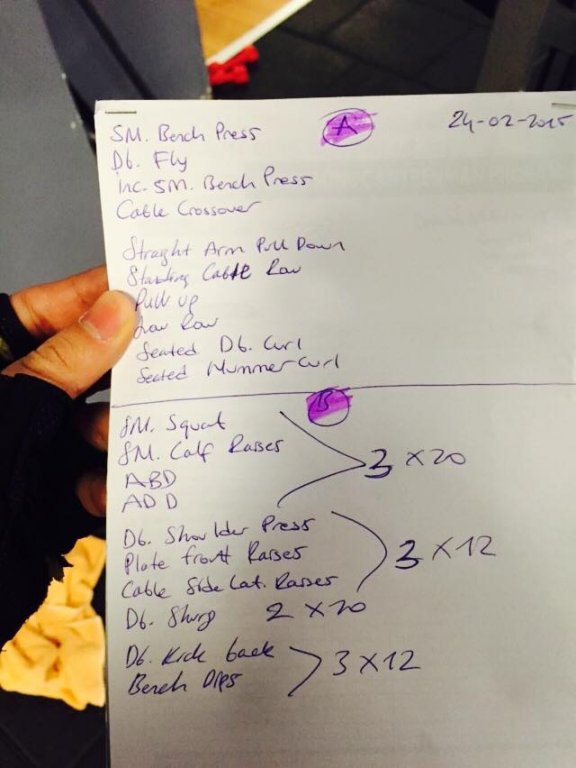 A
24-02-2015
SM. Bench Press
Db. Fly
Inc. SM. Bench Press
Cable Crossover
Straght Arm Pull Down
Standing Cable Row
Pull up
Low Row
Seated Db. Curl
Seated Hummer Curl
B
SM. Squat
SM. Calf Raises
ABD
ADD
3 x 20
Db. Shoulder Press
Plate front Raises
Cable Side Lat. Raises
3 x 12
Db. Shrug 2 x 20
Db. Kick back
Bench Dips
3 x 12